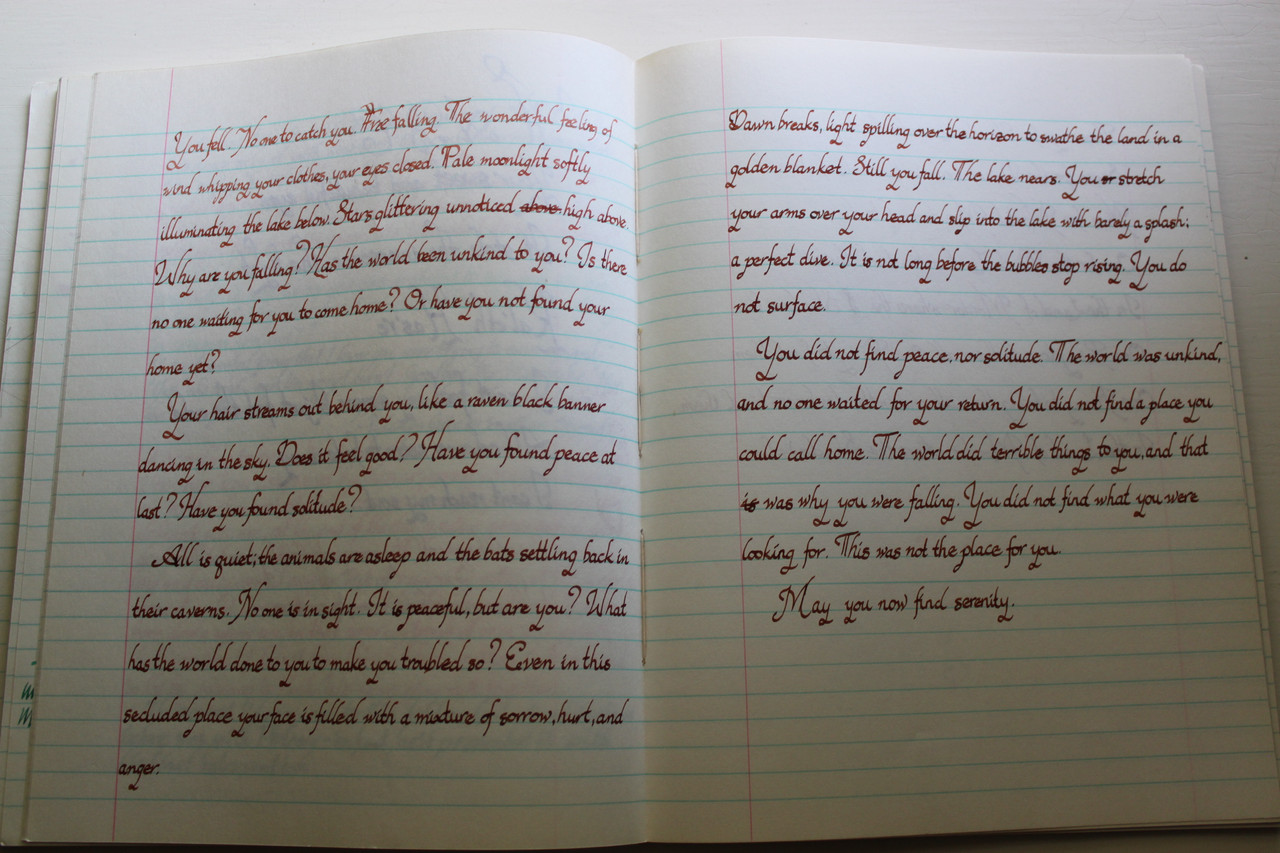 You fell. No one to catch you. Free falling. The wonderful feeling of
wind whipping your clothes, your eyes closed. Pale moonlight softly
illuminating the lake below. Stars glittering unnoticed above high above.
Why are you falling? Has the world been unkind to you? Is there
no one waiting for you to come home? Or have you not found your
home yet?
Your hair streams out behind you, like a raven black banner
dancing in the sky. Does it feel good? Have you found peace at
last? Have you found solitude?
All is quiet; the animals are asleep and the bats settling back in
their caverns. No one is in sight. It is peaceful, but are you? What
has the world done to you to make you troubled so? Even in this
secluded place your face is filled with a mixture of sorrow, hurt, and
anger.
Dawn breaks, light spilling over the horizon to swathe the land in a
golden blanket. Still you fall. The lake nears. You stretch
your arms over your head and slip into the lake with barely a splash;
a perfect dive. It is not long before the bubbles stop rising. You do
not surface.
You did not find peace, nor solitude. The world was unkind,
and no one waited for your return. You did not find a place you
could call home. The world did terrible things to you, and that
is was why you were falling. You did not find what you were
looking for. This was not the place for you.
May you now find serenity.